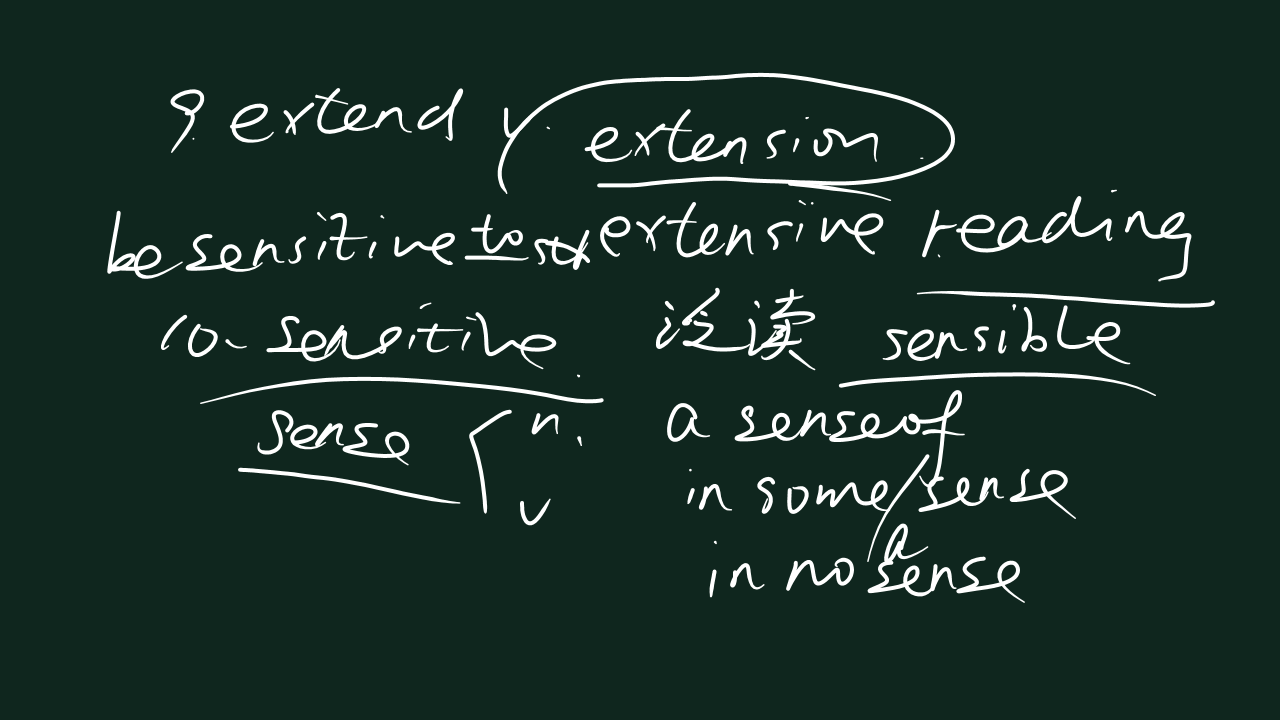 9 extend v. extension
be sensitive to extensive reading
10. sensitive 泛读 sensible
sense n. a sense of
v in some/a sense
in no sense